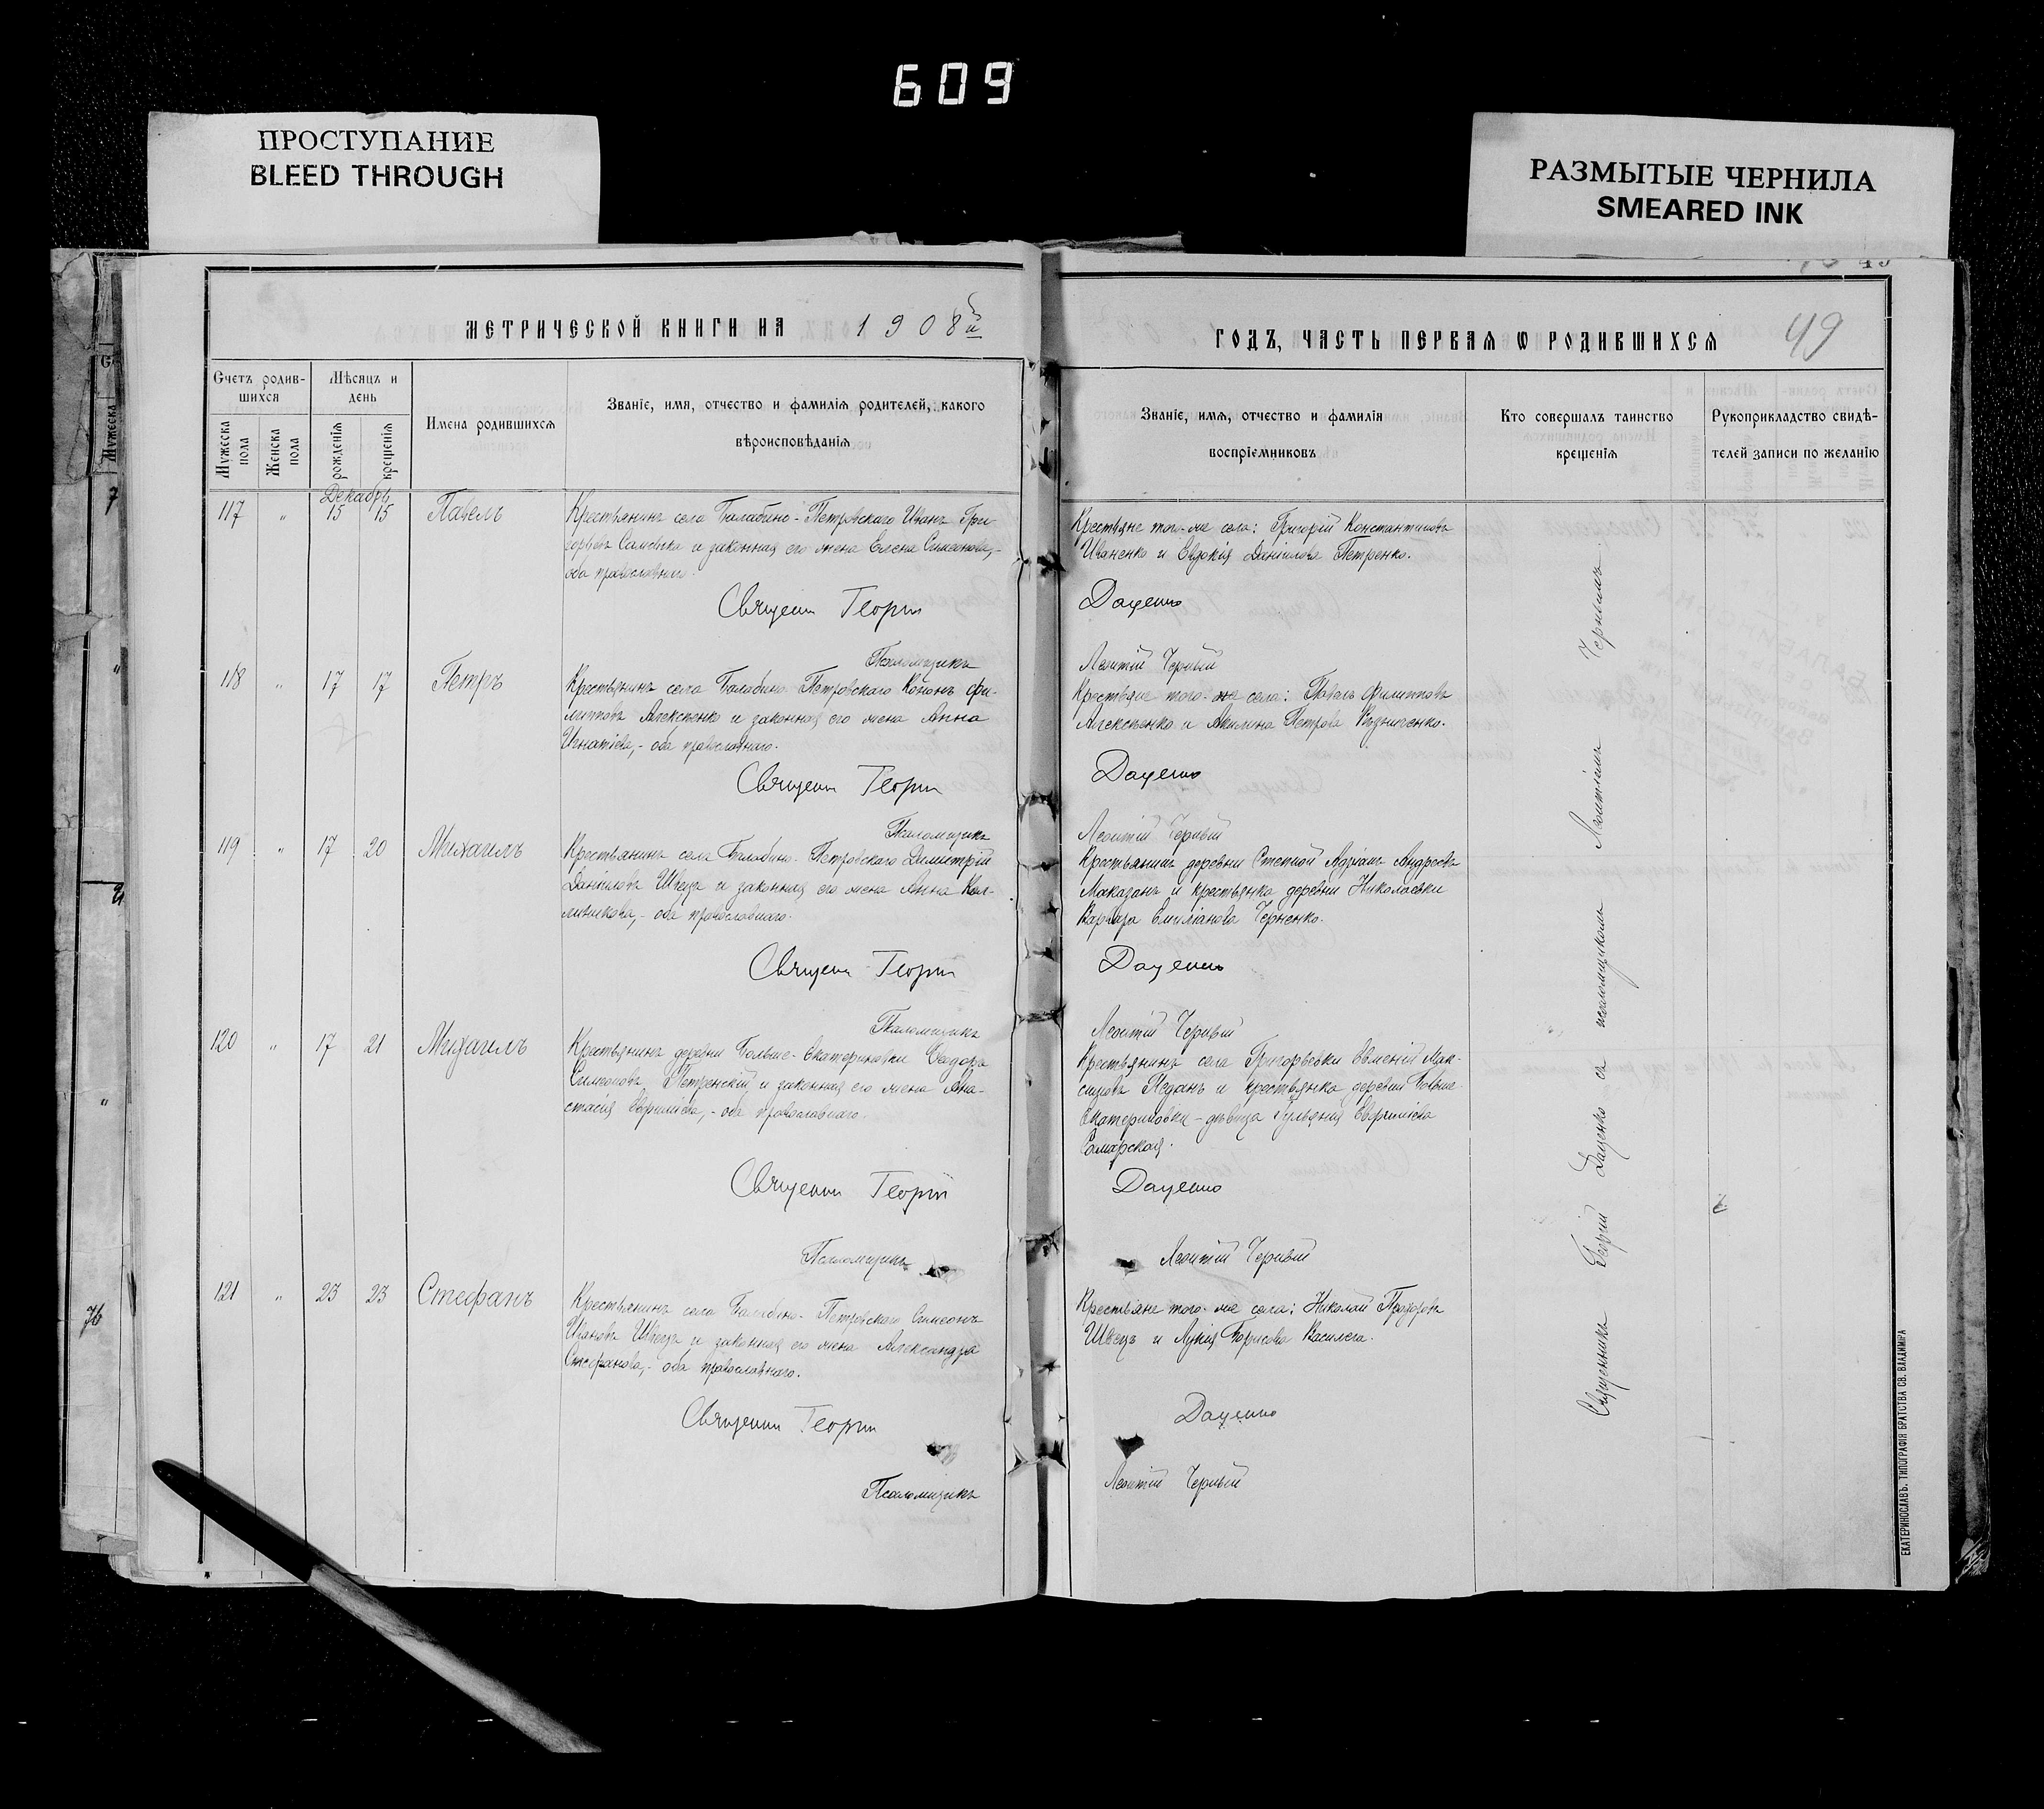 609
ПРОСТУПАНИЕ
BLEED THROUGH
РАЗМЫТЫЕ ЧЕРНИЛА
SMEARED INK
МЕТРИЧЕСКОЙ КНИГИ НА 1908й
Счетъ родившихся
Мѣсяцъ и день
Мужеска пола
Женска пола
рожденія
крещенія
Имена родившихся
Званіе, имя, отчество и фамилія родителей, какого
вѣроисповѣданія
Декабрь
117 " 15 15 Павелъ
Крестьянинъ села Балабино-Петровскаго Иванъ Гри-
горьевъ и законная его жена Елена Симеонова,-
оба православнаго.
Священн Георгій
Псаломщикъ
118 " 17 17 Петръ
Крестьянинъ села Балабино-Петровскаго Кононъ Фи-
липповъ Алексѣенко и законная его жена Анна
Игнатіева,- оба православнаго.
Священн Георгій
Псаломщикъ
119 " 17 20 Михаилъ
Крестьянинъ села Балабино-Петровскаго Димитрій
Даніиловъ Швецъ и законная его жена Анна
оба православнаго.
Священн Георгій
Псаломщикъ
120 " 17 21 Михаилъ
Крестьянинъ деревни Больше-Екатериновки Ѳеодоръ
Симеоновъ Петренскій и законная его жена Ана-
стасія Евфиміева,- оба православнаго.
Священн Георгій
Псаломщикъ
121 " 23 23 Стефанъ
Крестьянинъ села Балабино-Петровскаго Симеонъ
Ивановъ Швецъ и законная его жена Александра
Стефанова,- оба православнаго.
Священн Георгій
Псаломщикъ
ГОДЪ, ЧАСТЬ ПЕРВАЯ Ѡ РОДИВШИХСЯ
49
Званіе, имя, отчество и фамилія
воспріемниковъ
Кто совершалъ таинство
крещенія
Рукоприкладство свидѣ-
телей записи по желанію
Крестьяне того-же села: Григорій Константиновъ
Иваненко и Евдокія Даніилова Петренко.
Даценко
Леонтій Черный
Крестьяне того-же села: Павелъ Филипповъ
Алексѣенко и Акилина Петрова Кузьменко.
Даценко
Леонтій Черный
Крестьянинъ деревни Степной Адріанъ Андреевъ
Маказанъ и крестьянка деревни Николаевки
Варвара Емиліанова Черненко.
Даценко
Леонтій Черный
Крестьянинъ села Григорьевки Евменій Мак-
симовъ Педанъ и крестьянка деревни Больше-
Екатериновки - дѣвица Іульянія Евфиміева
Самарская.
Даценко
Леонтій Черный
Крестьяне того-же села: Николай Прохоровъ
Швецъ и Лукія Борисова
Даценко
Леонтій Черный
Священникъ Георгій Даценко съ псаломщикомъ Леонтіемъ Чернымъ
ЕКАТЕРИНОСЛАВЪ. ТИПОГРАФІЯ БРАТСТВА СВ. ВЛАДИМІРА